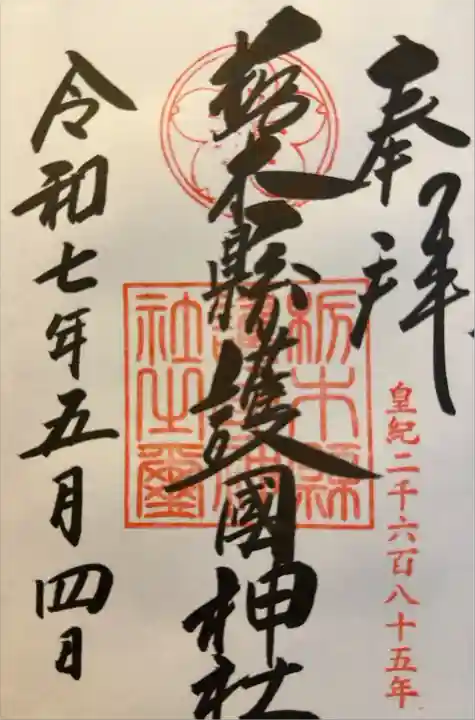 奉拝
皇紀二千六百八十五年
栃木縣護國神社
栃木縣
護國神
社之璽
令和七年五月四日